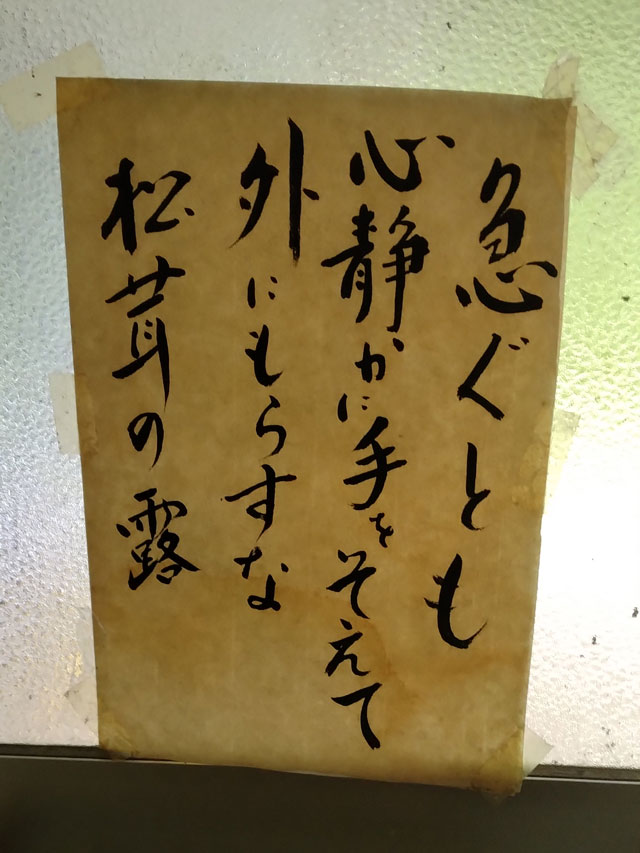 急ぐとも
心静かに手をそえて
外にもらすな
松茸の露